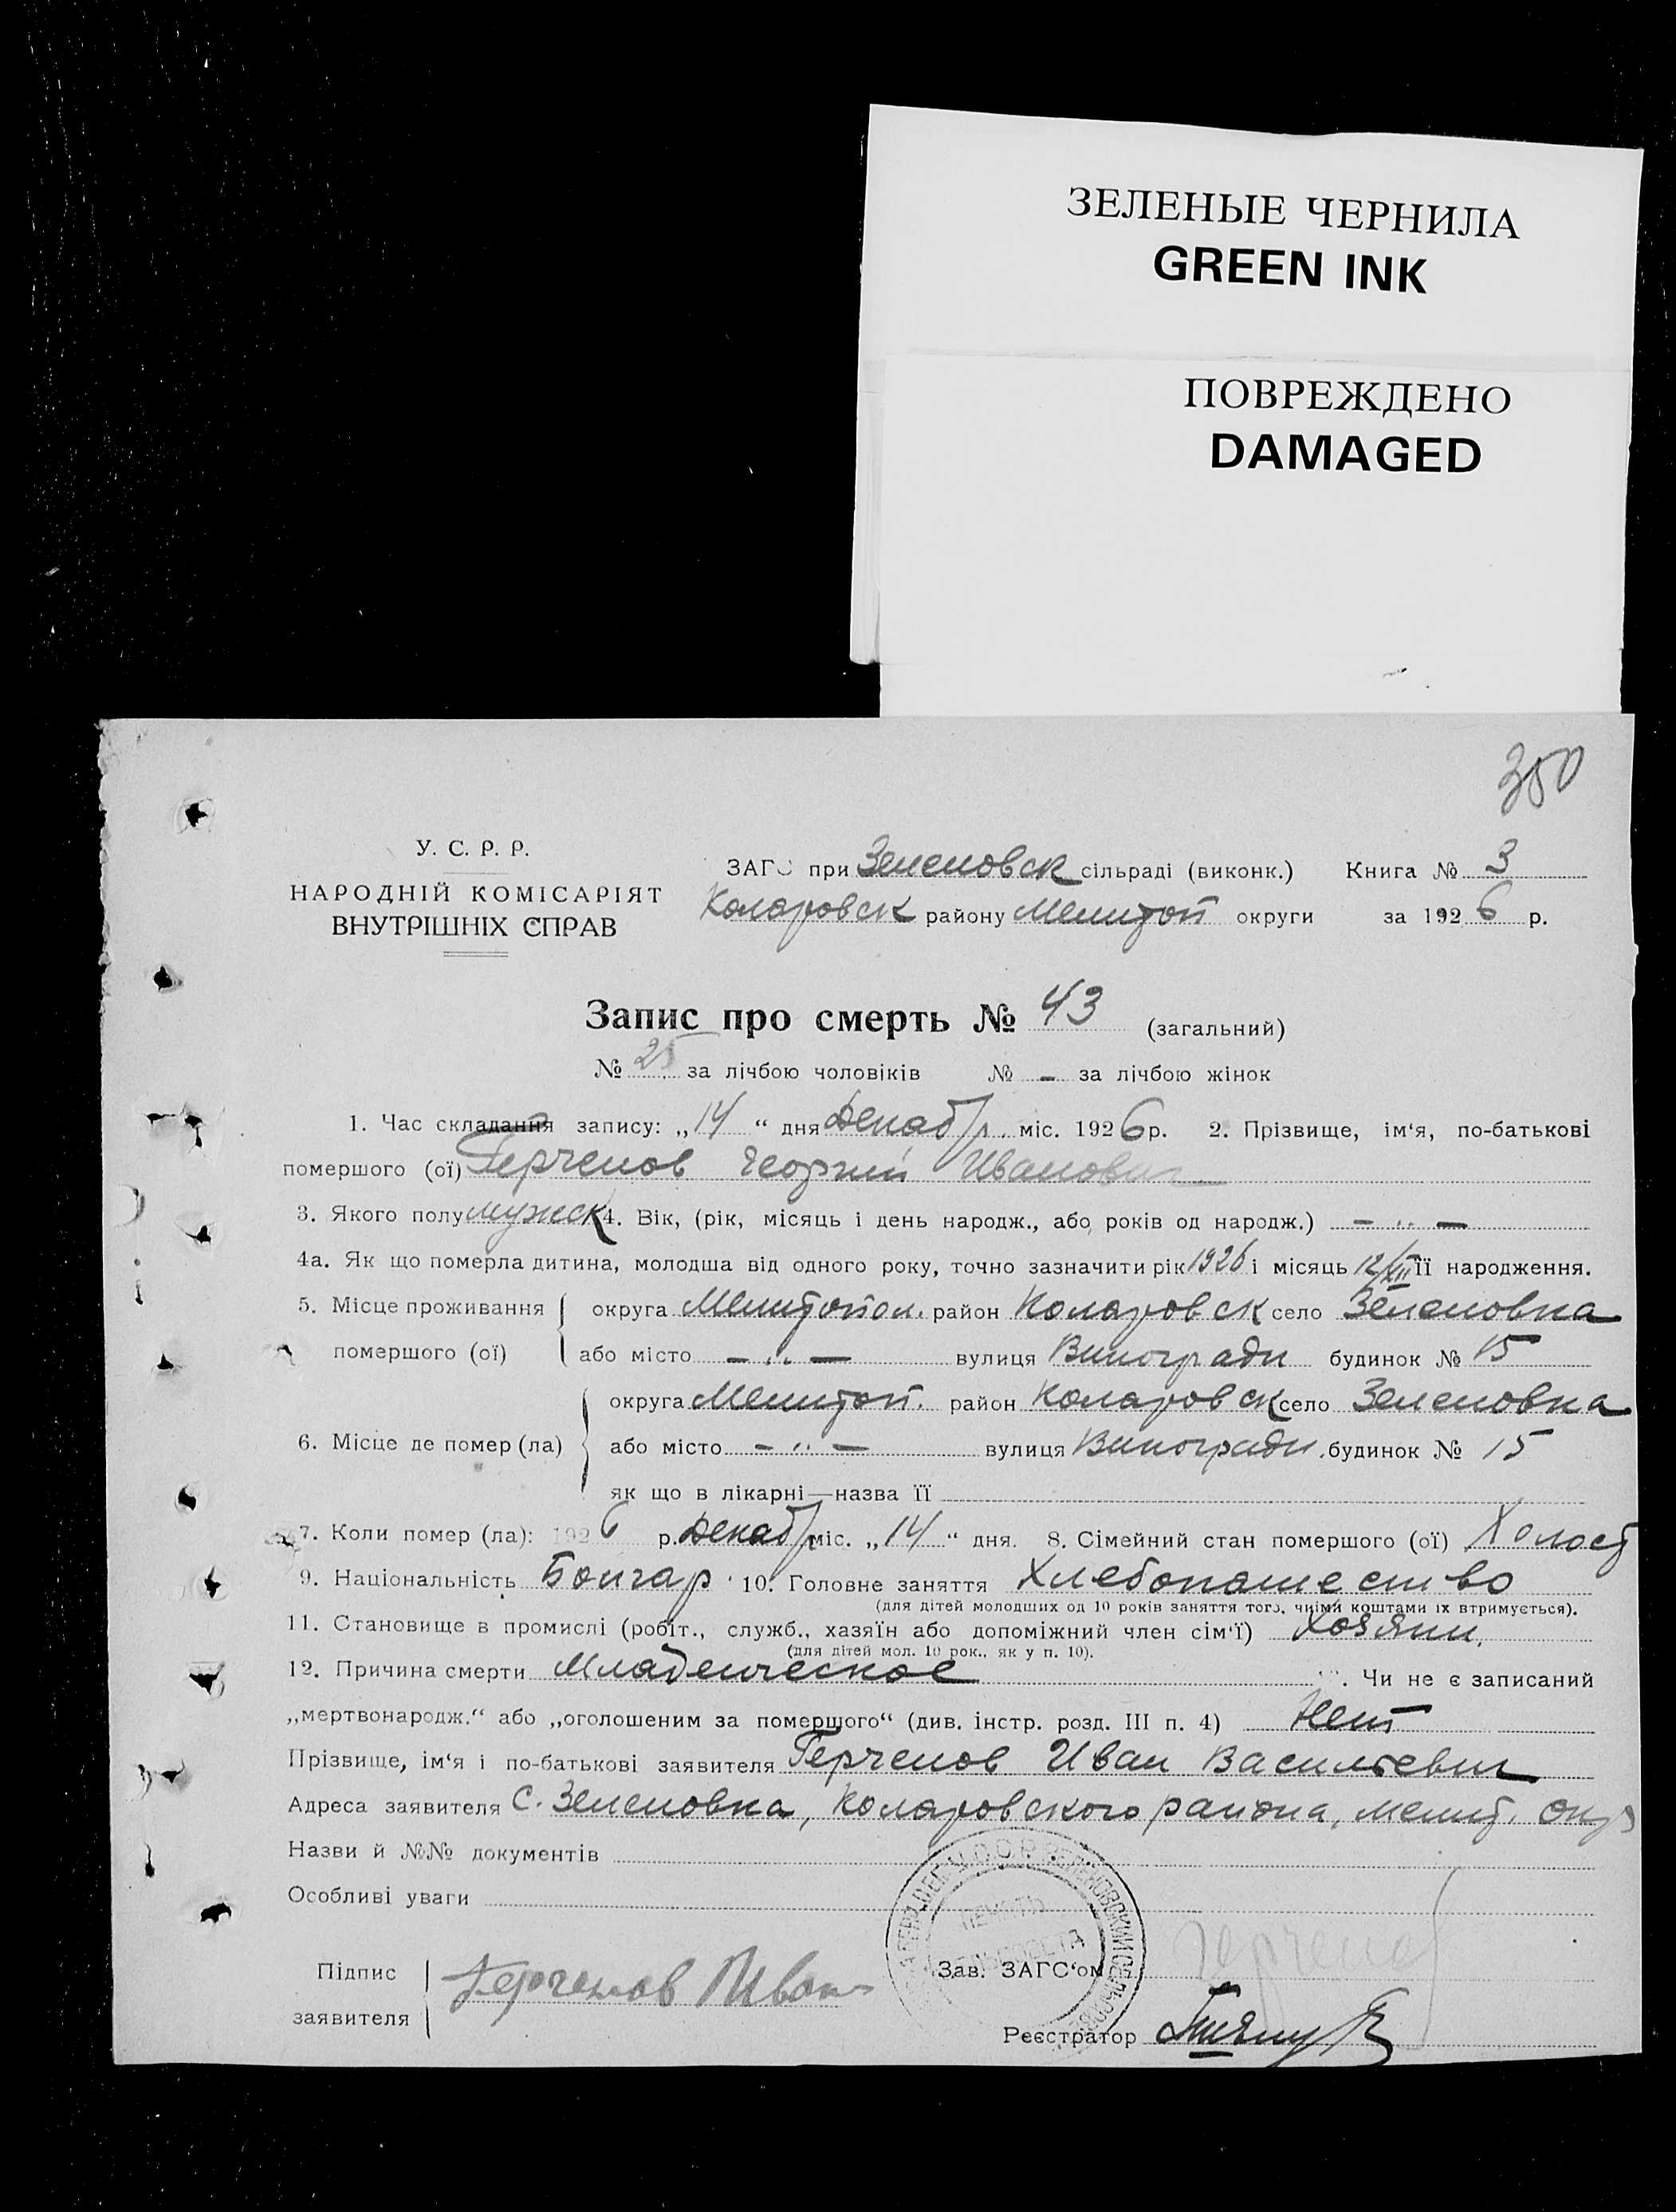 ЗЕЛЕНЫЕ ЧЕРНИЛА
GREEN INK
ПОВРЕЖДЕНО
DAMAGED
350
У. С. Р. Р.
НАРОДНІЙ КОМІСАРІЯТ
ВНУТРІШНІХ СПРАВ
ЗАГС при Зеленовск сільраді (виконк.) Книга № 3
Коларовск району Мелитоп округи за 1926 р.
Запис про смерть № 43 (загальний)
№ 25 за лічбою чоловіків № - за лічбою жінок
1. Час складання запису: „14“ дня Декабр. міс. 1926 р. 2. Прізвище, ім'я, по-батькові
помершого (ої) Герченов Георгий Иванович
3. Якого полу мужск 4. Вік, (рік, місяць і день народж., або років од народж.) — „ —
4а. Як що померла дитина, молодша від одного року, точно зазначити рік 1926 і місяць 12/XII її народження.
5. Місце проживання округа Мелитопол. район Коларовск село Зеленовка
помершого (ої) або місто — „ — вулиця Виногради будинок № 15
округа Мелитоп. район Коларовск село Зеленовка
6. Місце де помер (ла) або місто — „ — вулиця Виногради. будинок № 15
як що в лікарні—назва її
7. Коли помер (ла): 1926 р. Декабр міс. „14“ дня. 8. Сімейний стан помершого (ої) Холост
9. Національність Болгар. 10. Головне заняття Хлебопашество
(для дітей молодших од 10 років заняття того, чиїми коштами їх втримується).
11. Становище в промислі (робіт., служб., хазяїн або допоміжний член сім'ї) Хозяин.
(для дітей мол. 10 рок., як у п. 10).
12. Причина смерти Младенческое. Чи не є записаний
„мертвонародж.“ або „оголошеним за помершого“ (див. інстр. розд. III п. 4) Нет
Прізвище, ім'я і по-батькові заявителя Герченов Иван Васильевич
Адреса заявителя с. Зеленовка, Коларовского района, Мелит. окр
Назви й №№ документів
Особливі уваги
ПЕЧАТЬ
СЕЛЬСОВЕТА
Підпис
заявителя Герченов Иван
Зав. ЗАГС'ом Герченов
Реєстратор